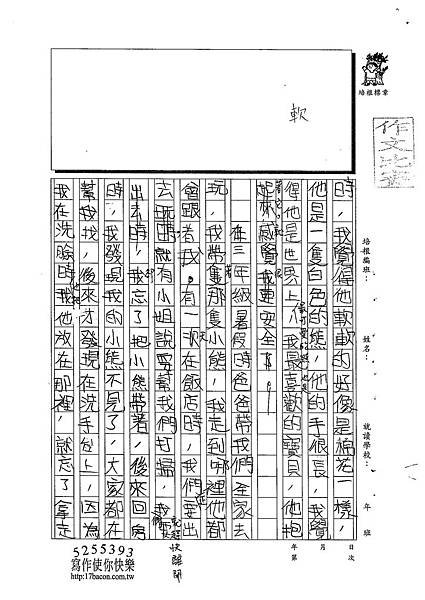 軟
培根標章
作文比賽
培根編班:
姓名:
就讀學校:
年 班
年 月 日
第 次
時,我覺得他軟軟的好像是棉花一樣,
他是一隻白色的熊,他的手很長,我覺
得他是世界上我最喜歡的寶貝,他抱
起來感覺我
安全!
在三年級暑假時爸爸帶我們全家去
玩,我帶著那隻小熊,我走到哪裡他都
會跟著我。有一次在飯店時,我們要出
去玩時就有小姐說要幫我們打掃,我們要
趕快離開
出去時,我忘了把小熊帶著,後來回房
時,我發現我的小熊不見了,大家都在
幫我找,後來才發現在洗手台上,因為
我在洗臉時把他放在那裡,就忘了拿走
5255393
寫作使你快樂
http://17bacon.com.tw